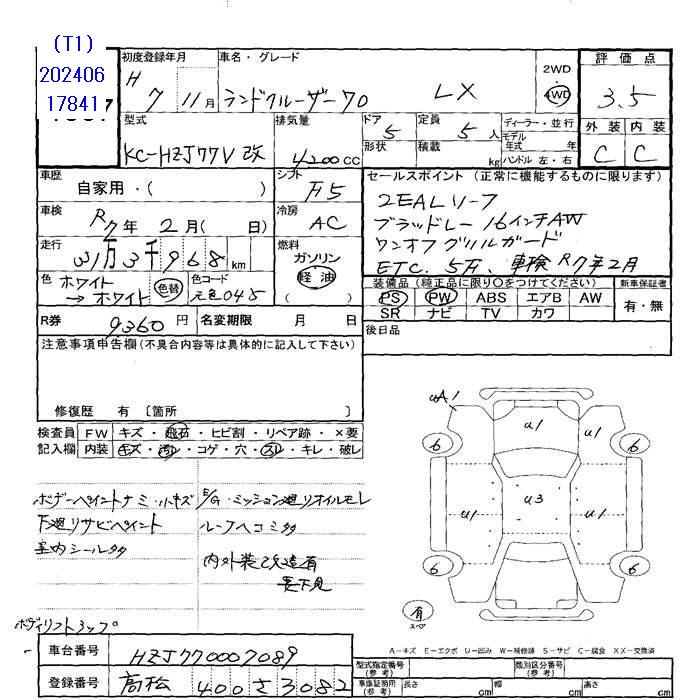 (T1)
202406
17841
初度登録年月
H 7年 11月
車名・グレード
ランドクルーザー70 LX
2WD
4WD
評価点
3.5
外装 内装
C C
型式
KC-HZJ77V 改
排気量
4200cc
ドア
5
形状
定員
5人
積載
kg
ディーラー・並行
モデル年式 年
ハンドル 左・右
車歴
自家用・( )
シフト
F5
車検
R7年 2月( 日)
冷房
AC
走行
31万3千968km
燃料
ガソリン
軽油
( )
色
ホワイト
→ホワイト
色替
色コード
元色045
セールスポイント (正常に機能するものに限ります)
ブラッドレー 16インチAW
ワンオフ グリルガード
ETC. 5方、車検R7年2月
装備品 (純正品に限り〇をつけてください)
新車保証書
PS PW ABS エアB AW
有・無
SR ナビ TV カワ
R券 9360円
名変期限 月 日
後日品
注意事項申告欄(不具合内容等は具体的に記入して下さい)
修復歴 有 〔箇所 〕
検査員記入欄
FW キズ・飛石・ヒビ割・リペア跡・×要
内装 キズ・汚レ・コゲ・穴・スレ・キレ・破レ
ボデーペイントナミ・小キズ
下廻リサビペイント
室内シール多
E/G・ミッション廻リオイルモレ
ルーフヘコミ多
内外装改造有
要下見
ボディリフトアップ
uA1
u1
u1
6
6
u1
u3
u1
6
6
有
スペア
A-キズ E-エクボ U-凹み W-補修跡 S-サビ C-腐食 XX-交換済
車台番号 HZJ770007089
登録番号 高松 400 さ 3082
型式指定番号(参考)
類別区分番号(参考)
車庫証明用(参考) 長さ cm 幅 cm 高さ cm